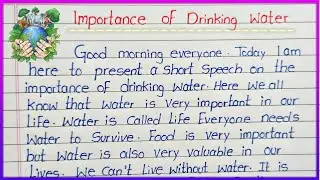 Importance of Drinking Water
Good morning everyone. Today I am
here to present a short speech on the
importance of drinking water. Here we all
know that water is very important in our
Life. Water is called Life Everyone needs
Water to Survive. Food is very important
but water is also very valuable in our
Lives. We Can't Live without water. It is